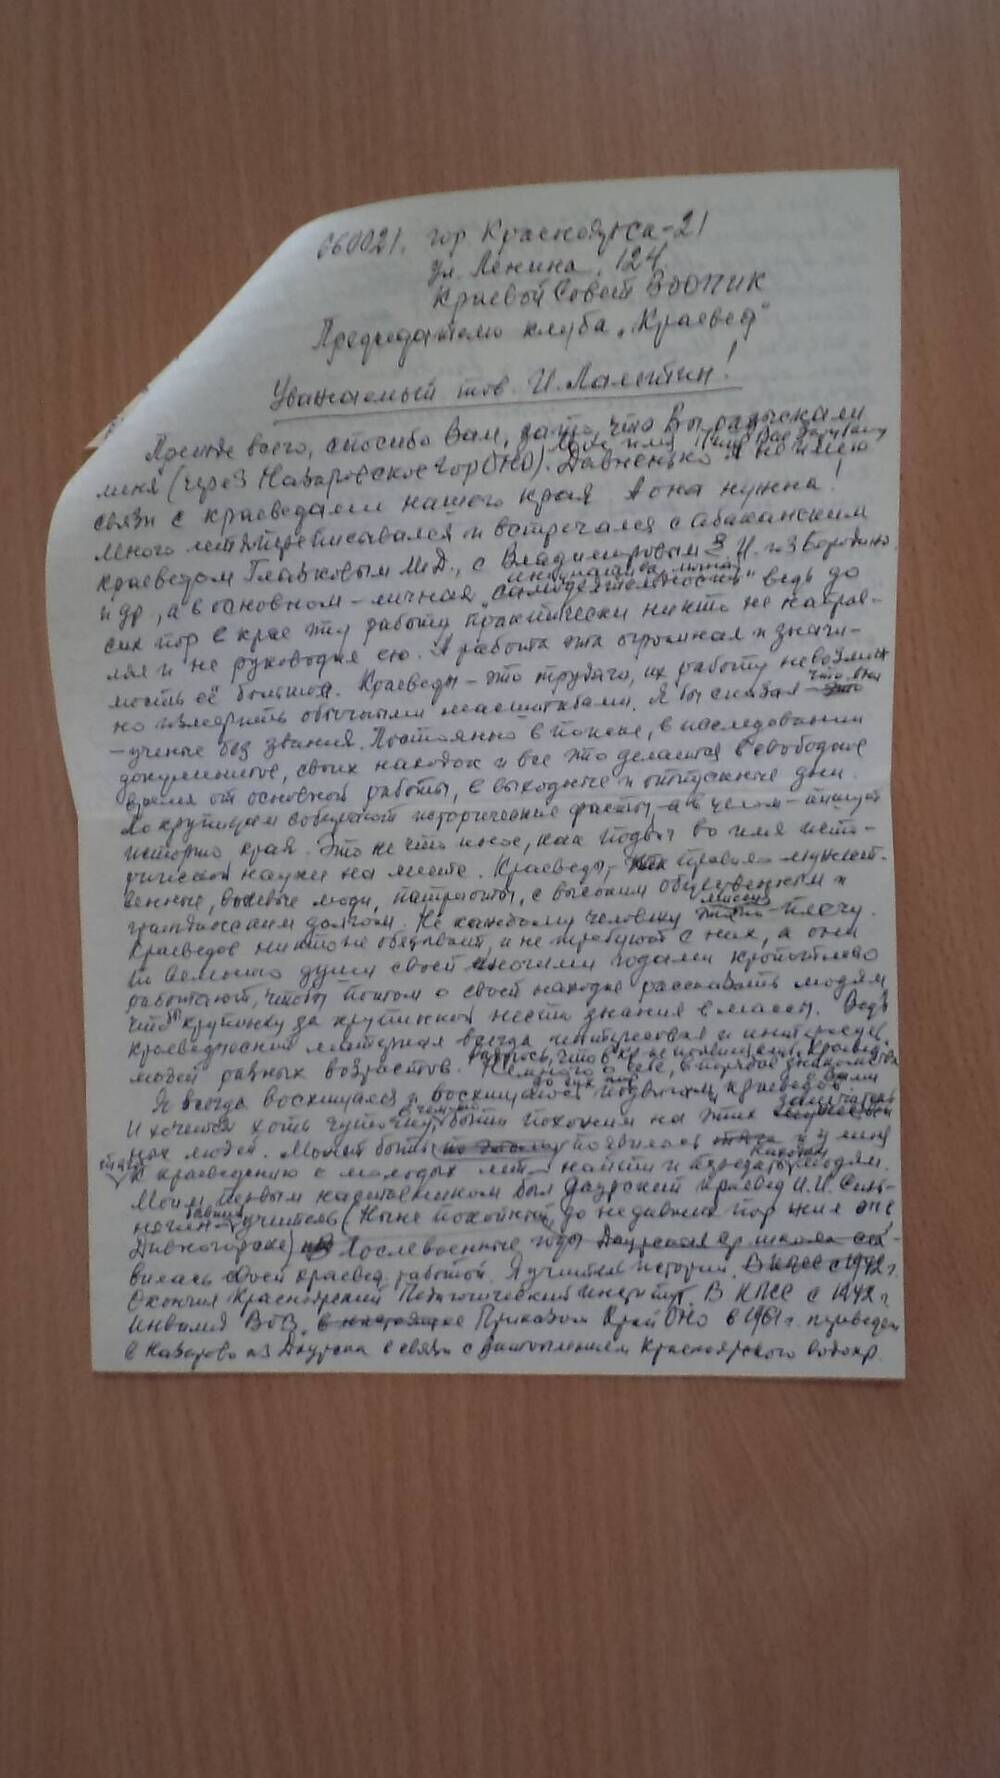 660021. гор Красноярск-21
ул. Ленина, 124.
Краевой Совет ВООПИК
Председателю клуба „Краевед"
Уважаемый тов. И. Лалетин!
Прежде всего, спасибо Вам, за то, что Вы разыскали
меня (через Назаровское ГорОНО). Давненько я не имею
связи с краеведами нашего края. А она нужна!
Много лет переписывался и встречался с абаканским
краеведом Глазковым М.Д., с Владимировым В. И. из Бородино
инициатива,
и др, а в основном – личная „самодеятельность" ведь до
сих пор в крае эту работу практически никто не направ-
лял и не руководил ею. А работа эта огромная и значи-
мость её большая. Краеведы – это трудяги, их работу невозмож
но измерить обычными масштабами. Я бы сказал – что они
– ученые без звания. Постоянно в поиске, в исследовании
документов, своих находок и все это делается в свободное
время от основной работы, в выходные и отпускные дни.
По крупицам собирают исторические факты, – а в целом – пишут
историю края. Это не что иное, как подвиг во имя исто-
рической науки на месте. Краеведы, – как правило – мужест-
венные, волевые люди, патриоты, с высоким общественным и
миссия
гражданским долгом. Не каждому человеку эта – по плечу.
Краеведов никто не обязывает, и не требуют с них, а они
по велению души своей многими годами кропотливо
работают, чтобы потом о своей находке рассказать людям
чтобы крупинку за крупинкой нести знания в массы. Ведь
краеведческий материал всегда интересовал и интересует
людей разных возрастов. Немного о себе, в порядке знакомства
до сих пор с Вами
Я всегда восхищался и восхищаюсь подвигами краеведов
в чем-то
И хочется хоть чуточку быть похожим на этих замечатель
ных людей. Может быть поэтому появилась тяга и у меня
к краеведению с молодых лет – найти и передать людям.
Моим первым наставником был Даурский краевед И.И. Синь-
бывший
учитель (Ныне покойный, до недавних пор жил в г.
Дивногорске) Послевоенные годы Даурская ср школа сла-
вилась своей краевед. работой. Я учитель истории. В КПСС с 1942 г.
Окончил Красноярский Педагогический институт. В КПСС с 1942 г
Инвалид ВОВ, в настоящее Приказом КрайОНО в 1961 г. переведен
в Назарово из Даурска в связи с затоплением Красноярского водохр.